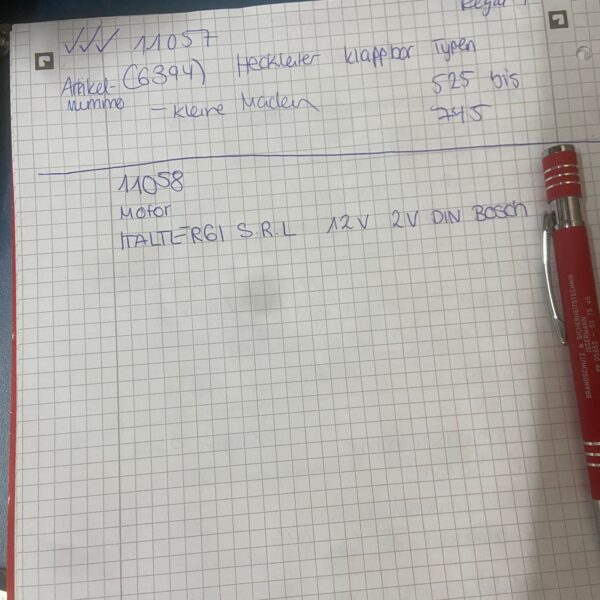 Regal
✓✓✓ 11057
Artikel- (6394) Heckleiter klappbar Typen
nummer - kleine Macken 525 bis
745
11058
Motor
ITALTERGI S.R.L 12V 2V DIN Bosch
BRANDSCHUTZ & SICHERHEITSTECHNIK
OSTERMANN